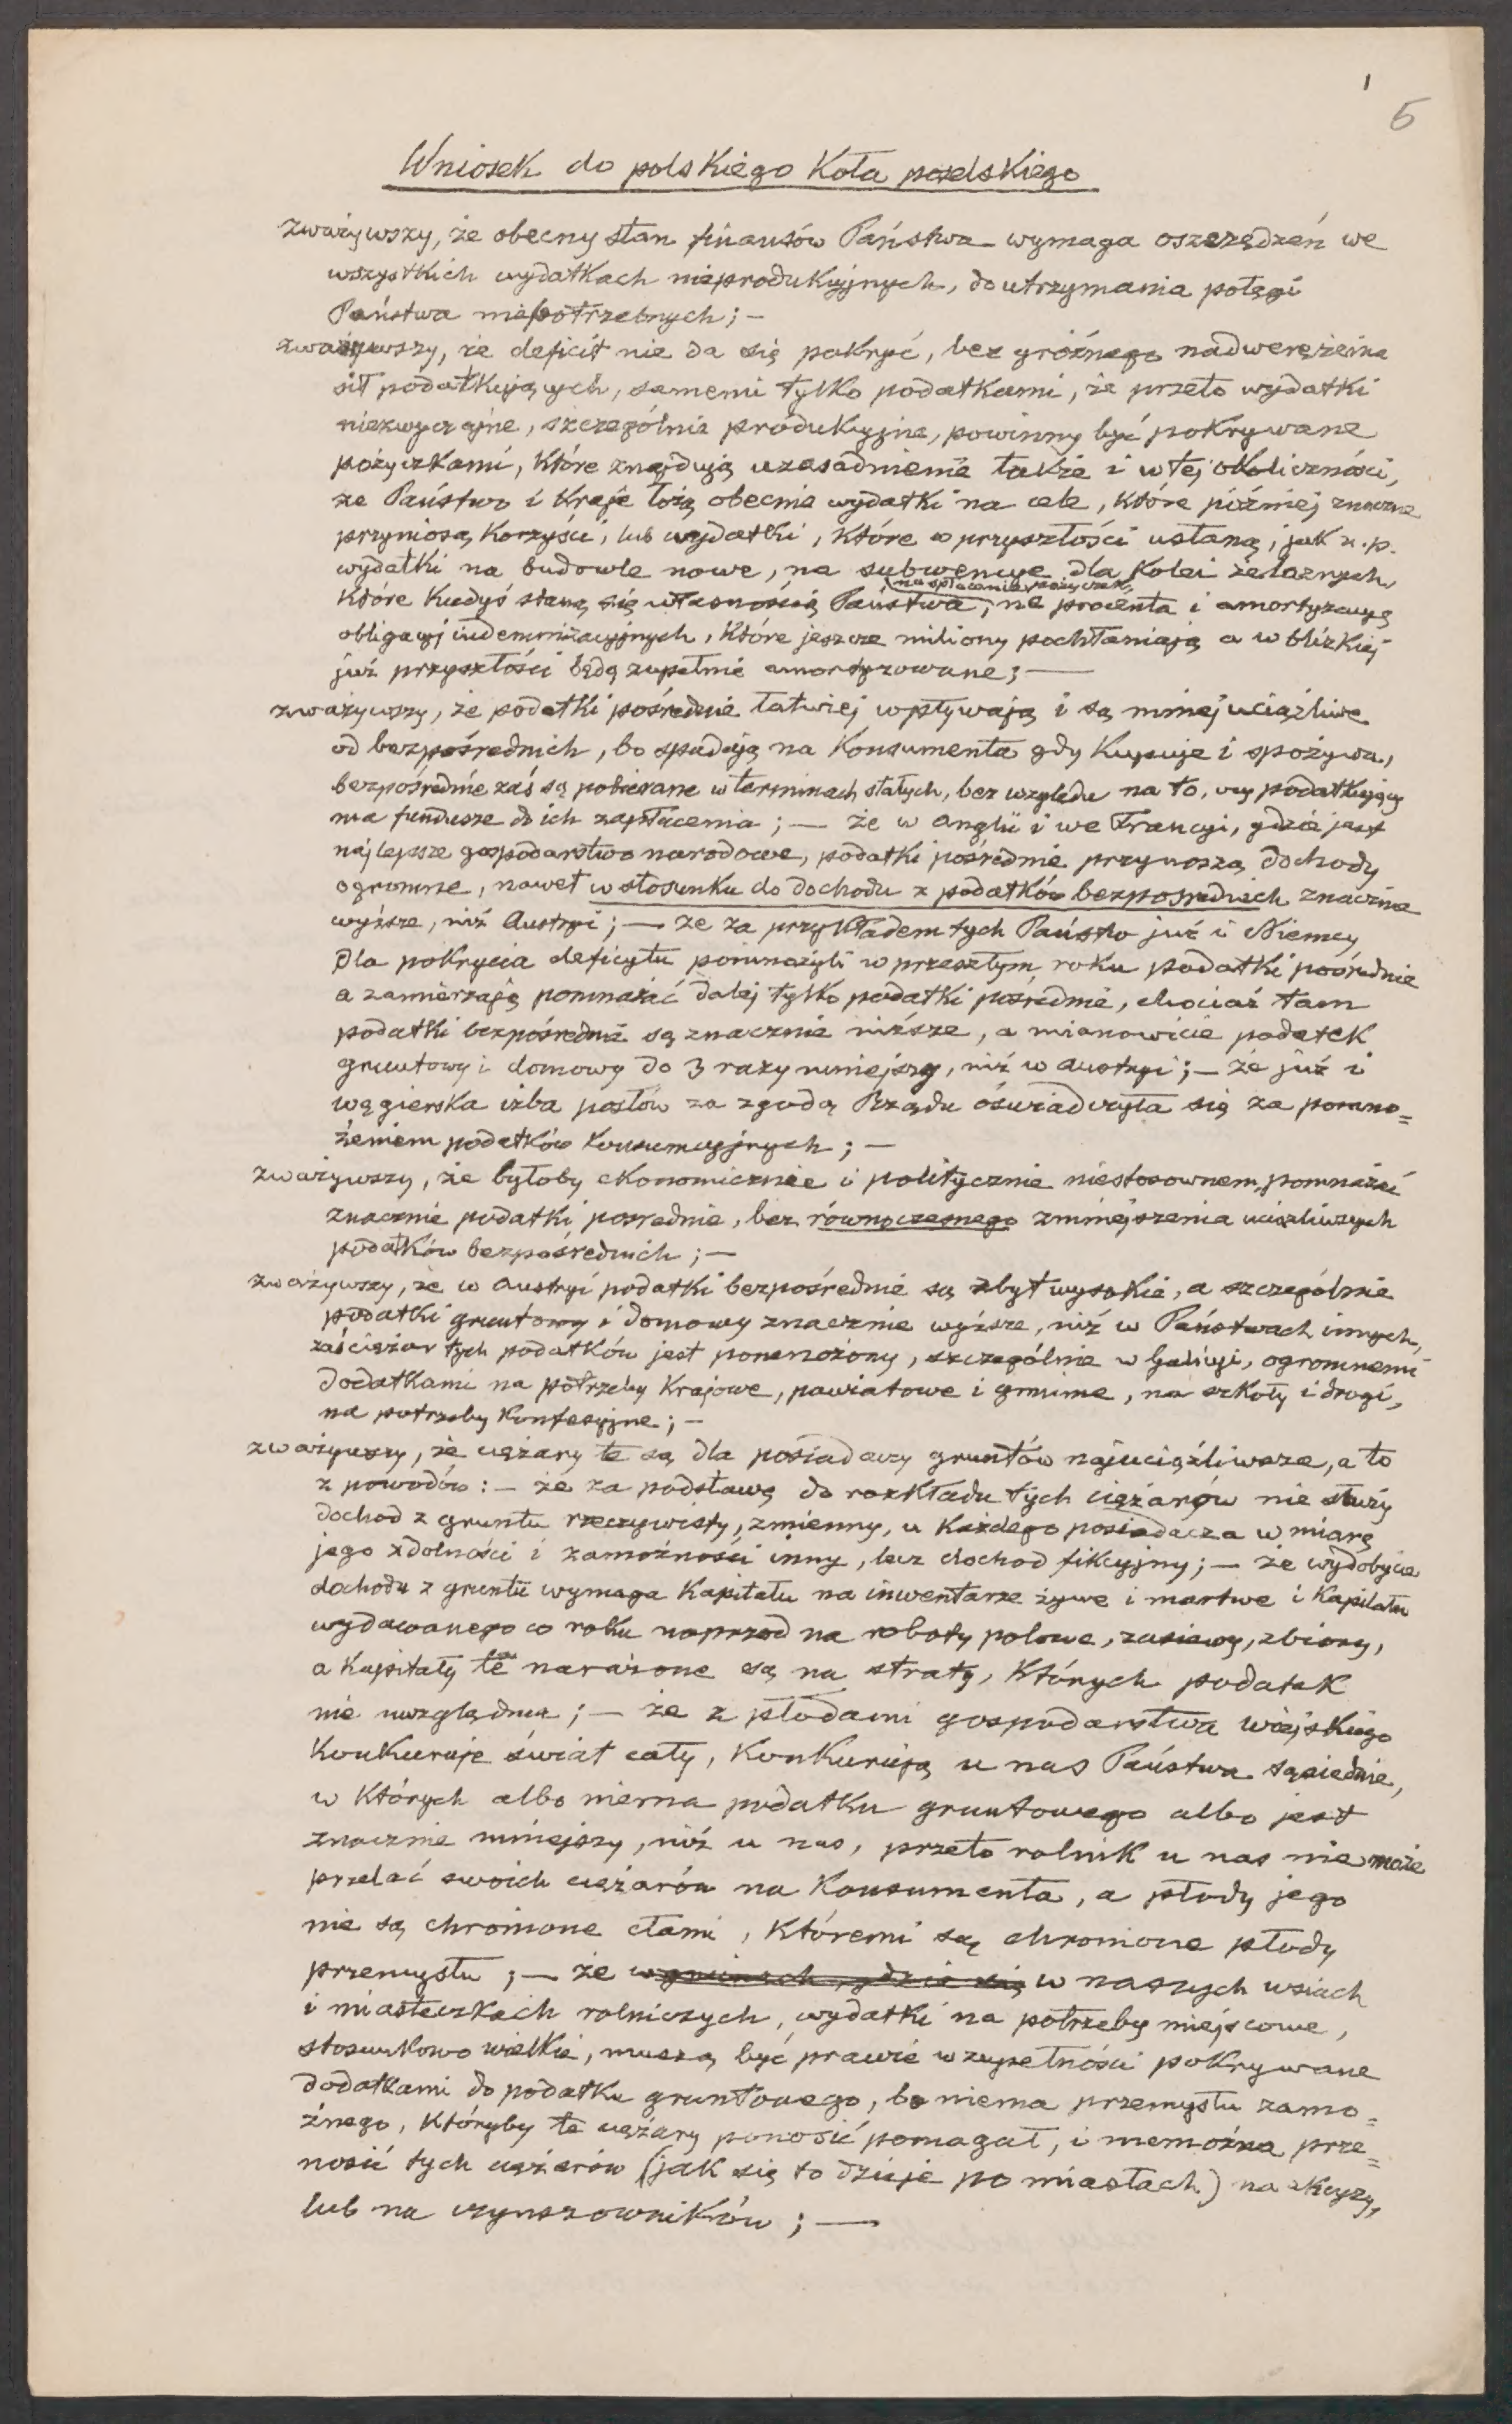 1
5
Wniosek do polskiego Koła poselskiego
zważywszy, że obecny stan finansów Państwa wymaga oszczędzeń we
wszystkich wydatkach nieprodukcyjnych, do utrzymania potęgi
Państwa niepotrzebnych; –
zważywszy, że deficit nie da się pokryć, bez groźnego nadwerężenia
sił podatkujących, samemi tylko podatkami, że przeto wydatki
niezwyczajne, szczególnie produkcyjne, powinny być pokrywane
pożyczkami, które znajdują uzasadnienie także i w tej okoliczności,
że Państwo i Kraje łożą obecnie wydatki na cele, które później znaczne
przyniosą korzyści, lub wydatki, które w przyszłości ustaną, jak n.p.
wydatki na budowle nowe, na subwencye dla Kolei żelaznych,
(na spłacenie pożyczek,
które kiedyś staną się własnością Państwa, na procenta i amortyzacyę
obligacyj indemnizacyjnych, które jeszcze miliony pochłaniają a w blizkiej
już przyszłości będą zupełnie amortyzowane; —
zważywszy, że podatki pośrednie łatwiej wpływają i są mniej uciążliwe
od bezpośrednich, bo spadają na Konsumenta gdy Kupuje i spożywa,
bezpośrednie zaś są pobierane w terminach stałych, bez względu na to, czy podatkujący
ma fundusze do ich zapłacenia; — że w Anglii i we Francyi, gdzie jest
najlepsze gospodarstwo narodowe, podatki pośrednie przynoszą dochody
ogromne, nawet w stosunku do dochodu z podatków bezpośrednich znacznie
wyższe, niż Austryi; — że za przykładem tych Państw już i Niemcy
dla pokrycia deficytu pomnożyli w przeszłym roku podatki pośrednie
a zamierzają pomnażać dalej tylko podatki pośrednie, chociaż tam
podatki bezpośrednie są znacznie niższe, a mianowicie podatek
gruntowy i domowy do 3 razy mniejszy, niż w Austryi; — że już i
węgierska izba posłów za zgodą Rządu oświadczyła się za pomno=
żeniem podatków konsumcyjnych; —
zważywszy, że byłoby ekonomicznie i politycznie niestosownem, pomnażać
znacznie podatki pośrednie, bez równoczesnego zmniejszenia uciążliwszych
podatków bezpośrednich; —
zważywszy, że w Austryi podatki bezpośrednie są zbyt wysokie, a szczególnie
podatki gruntowy i domowy znacznie wyższe, niż w Państwach innych,
zaś ciężar tych podatków jest pomnożony, szczególnie w Galicyi, ogromnemi
dodatkami na potrzeby Krajowe, powiatowe i gminne, na szkoły i drogi,
na potrzeby Konfesyjne; –
zważywszy, że ciężary te są dla posiadaczy gruntów najuciążliwsze, a to
z powodów: – że za podstawę do rozkładu tych ciężarów nie służy
dochod z gruntu rzeczywisty, zmienny, u każdego posiadacza w miarę
jego zdolności i zamożności inny, lecz dochod fikcyjny; — że wydobycie
dochodu z gruntu wymaga Kapitału na inwentarze żywe i martwe i Kapitału
wydawanego co roku naprzod na roboty polowe, zasiewy, zbiory,
a Kapitały te narażone są na straty, których podatek
nie uwzględnia; — że z płodami gospodarstwa wiejskiego
Konkuruje świat cały, Konkurują u nas Państwa sąsiednie,
w których albo niema podatku gruntowego albo jest
znacznie mniejszy, niż u nas, przeto rolnik u nas nie może
przelać swoich ciężarów na Konsumenta, a płody jego
nie są chronione cłami, któremi są chronione płody
przemysłu; — że w gminach, gdzie się w naszych wsiach
i miasteczkach rolniczych, wydatki na potrzeby miejscowe,
stosunkowo wielkie, muszą być prawie w zupełności pokrywane
dodatkami do podatku gruntowego, bo niema przemysłu zamo=
żnego, któryby te ciężary ponosić pomagał, i niemożna prze=
nosić tych ciężarów (jak się to dzieje po miastach) na akcyzy,
lub na czynszowników; —